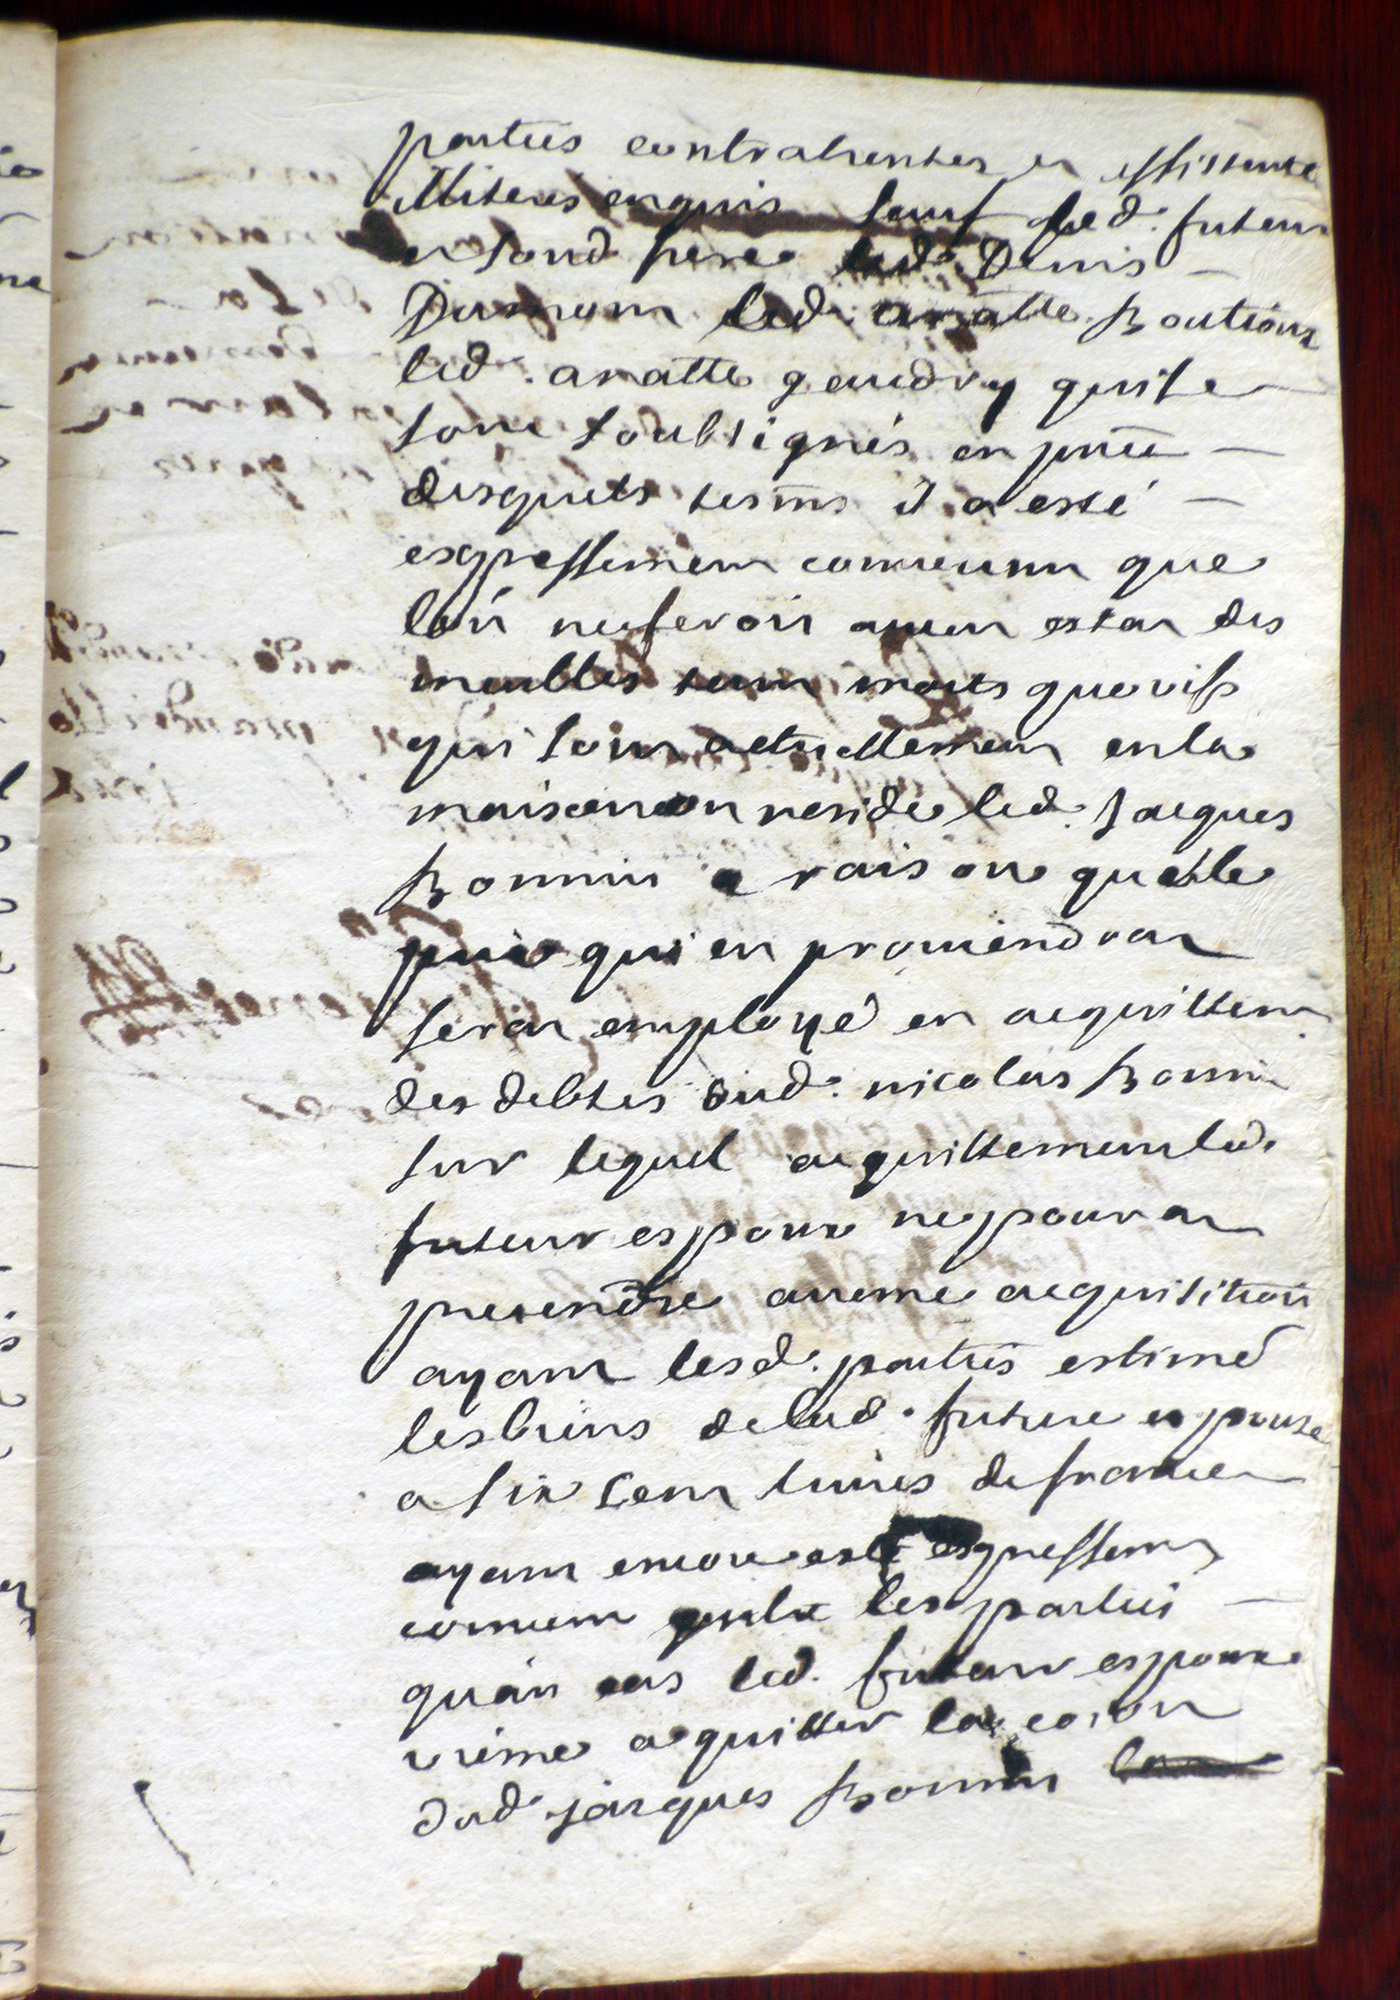 parties contrahentes et assistente
illiteres enquis sauf led. futeur
et sond pere led Denis
Dumom led. anatte Boutioux
led. anatte gaudry qui se
sont soubsignés en pnce
desquels tesms il a esté
expressement convenun que
lon ne feroit aucun estat des
meubles tant morts que vifs
qui sont actuellement en la
maison on reside led. Jacques
Bonnin a raison que le
prix qui en proviendrat
serat employé en acquittem
des debtes dud. nicolas Bonnin
sur lequel acquittement led.
futeur espoux ne pourrat
pretendre aucune acquisition
ayant lesd. parties estimé
les biens de lad. future espouse
a six cent livres de france
ayant encore esté expressem
convenu les parties
quan cas led. futeur espoux
vienne acquitter la
dud. jacques Bonnin